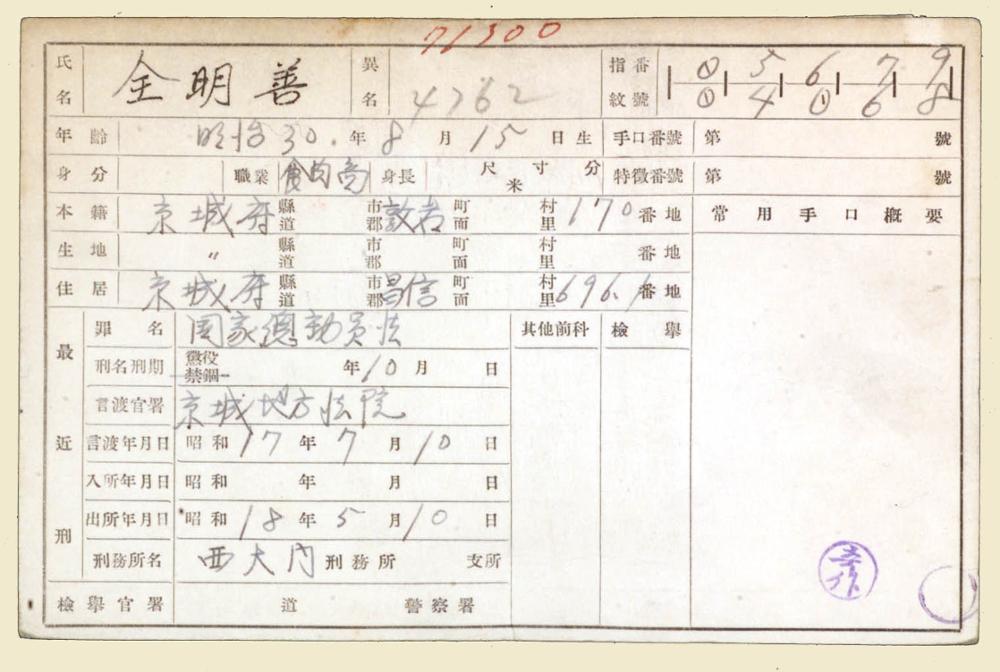 71300
氏名 全明善 異名 4762 指紋番號 0 5 6 7 9
0 4 0 6 8
年齡 明治30.年8月15日生 手口番號 第 號
身分 職業 食肉商 身長 尺寸分 米 特徵番號 第 號
本籍 京城府 縣道 市郡 敦岩 町面 村里 170 番地 常用手口概要
生地 〃 縣道 市郡 町面 村里 番地
住居 京城府 縣道 市郡 昌信 町面 村里 696.1 番地
最近刑 罪名 国家總動員法 其他前科 檢擧
刑名刑期 懲役 禁錮 年10月 日
言渡官署 京城地方法院
言渡年月日 昭和17年7月10日
入所年月日 昭和 年 月 日
出所年月日 昭和18年5月10日
刑務所名 西大門刑務所 支所
檢擧官署 道 警察署